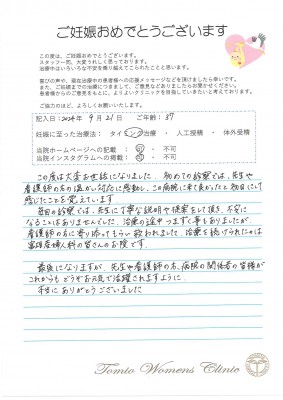 ご妊娠おめでとうございます
この度は、ご妊娠おめでとうございます。
スタッフ一同、大変うれしく思っております。
治療中はいろいろな不安を乗り越えてこられたことと思います。
喜びの声や、現在治療中の患者様への応援メッセージなどを頂けましたら幸いです。
また、ご妊娠までの治療につきまして、ご意見などありましたらお聞かせください。
患者様からのご意見をもとに、よりよいクリニックを目指していきたいと考えております。
ご協力のほど、よろしくお願いいたします。
記入日：2024年 9月 21日 ご年齢：37
妊娠に至った治療法：タイミング治療 ・ 人工授精 ・ 体外受精
当院ホームページへの記載 ： 可 ・ 不可
当院インスタグラムへの掲載 ： 可 ・ 不可
この度は大変お世話になりました。初めての診察では、先生や
看護師の方の温かい対応に感動し、この病院に来て良かったと初日にして
感じたことを覚えています
毎回の診察では、先生に丁寧な説明や提案をして頂き、不安に
なることはありませんでした。治療の途中つまずく事もありましたが、
看護師の方に寄り添ってもらい救われました。治療を続けられたのは
富田産婦人科の皆さんのお陰です。
最後になりますが、先生や看護師の方、病院の関係者の皆様が
これからもどうぞお元気で活躍されますように。
本当にありがとうございました
Tomio Womens Clinic